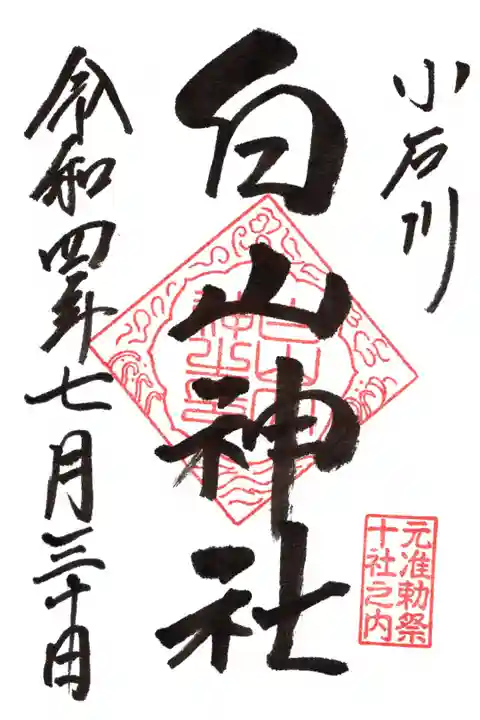 小石川
白山神社
元准勅祭
十社之内
令和四年七月三十日